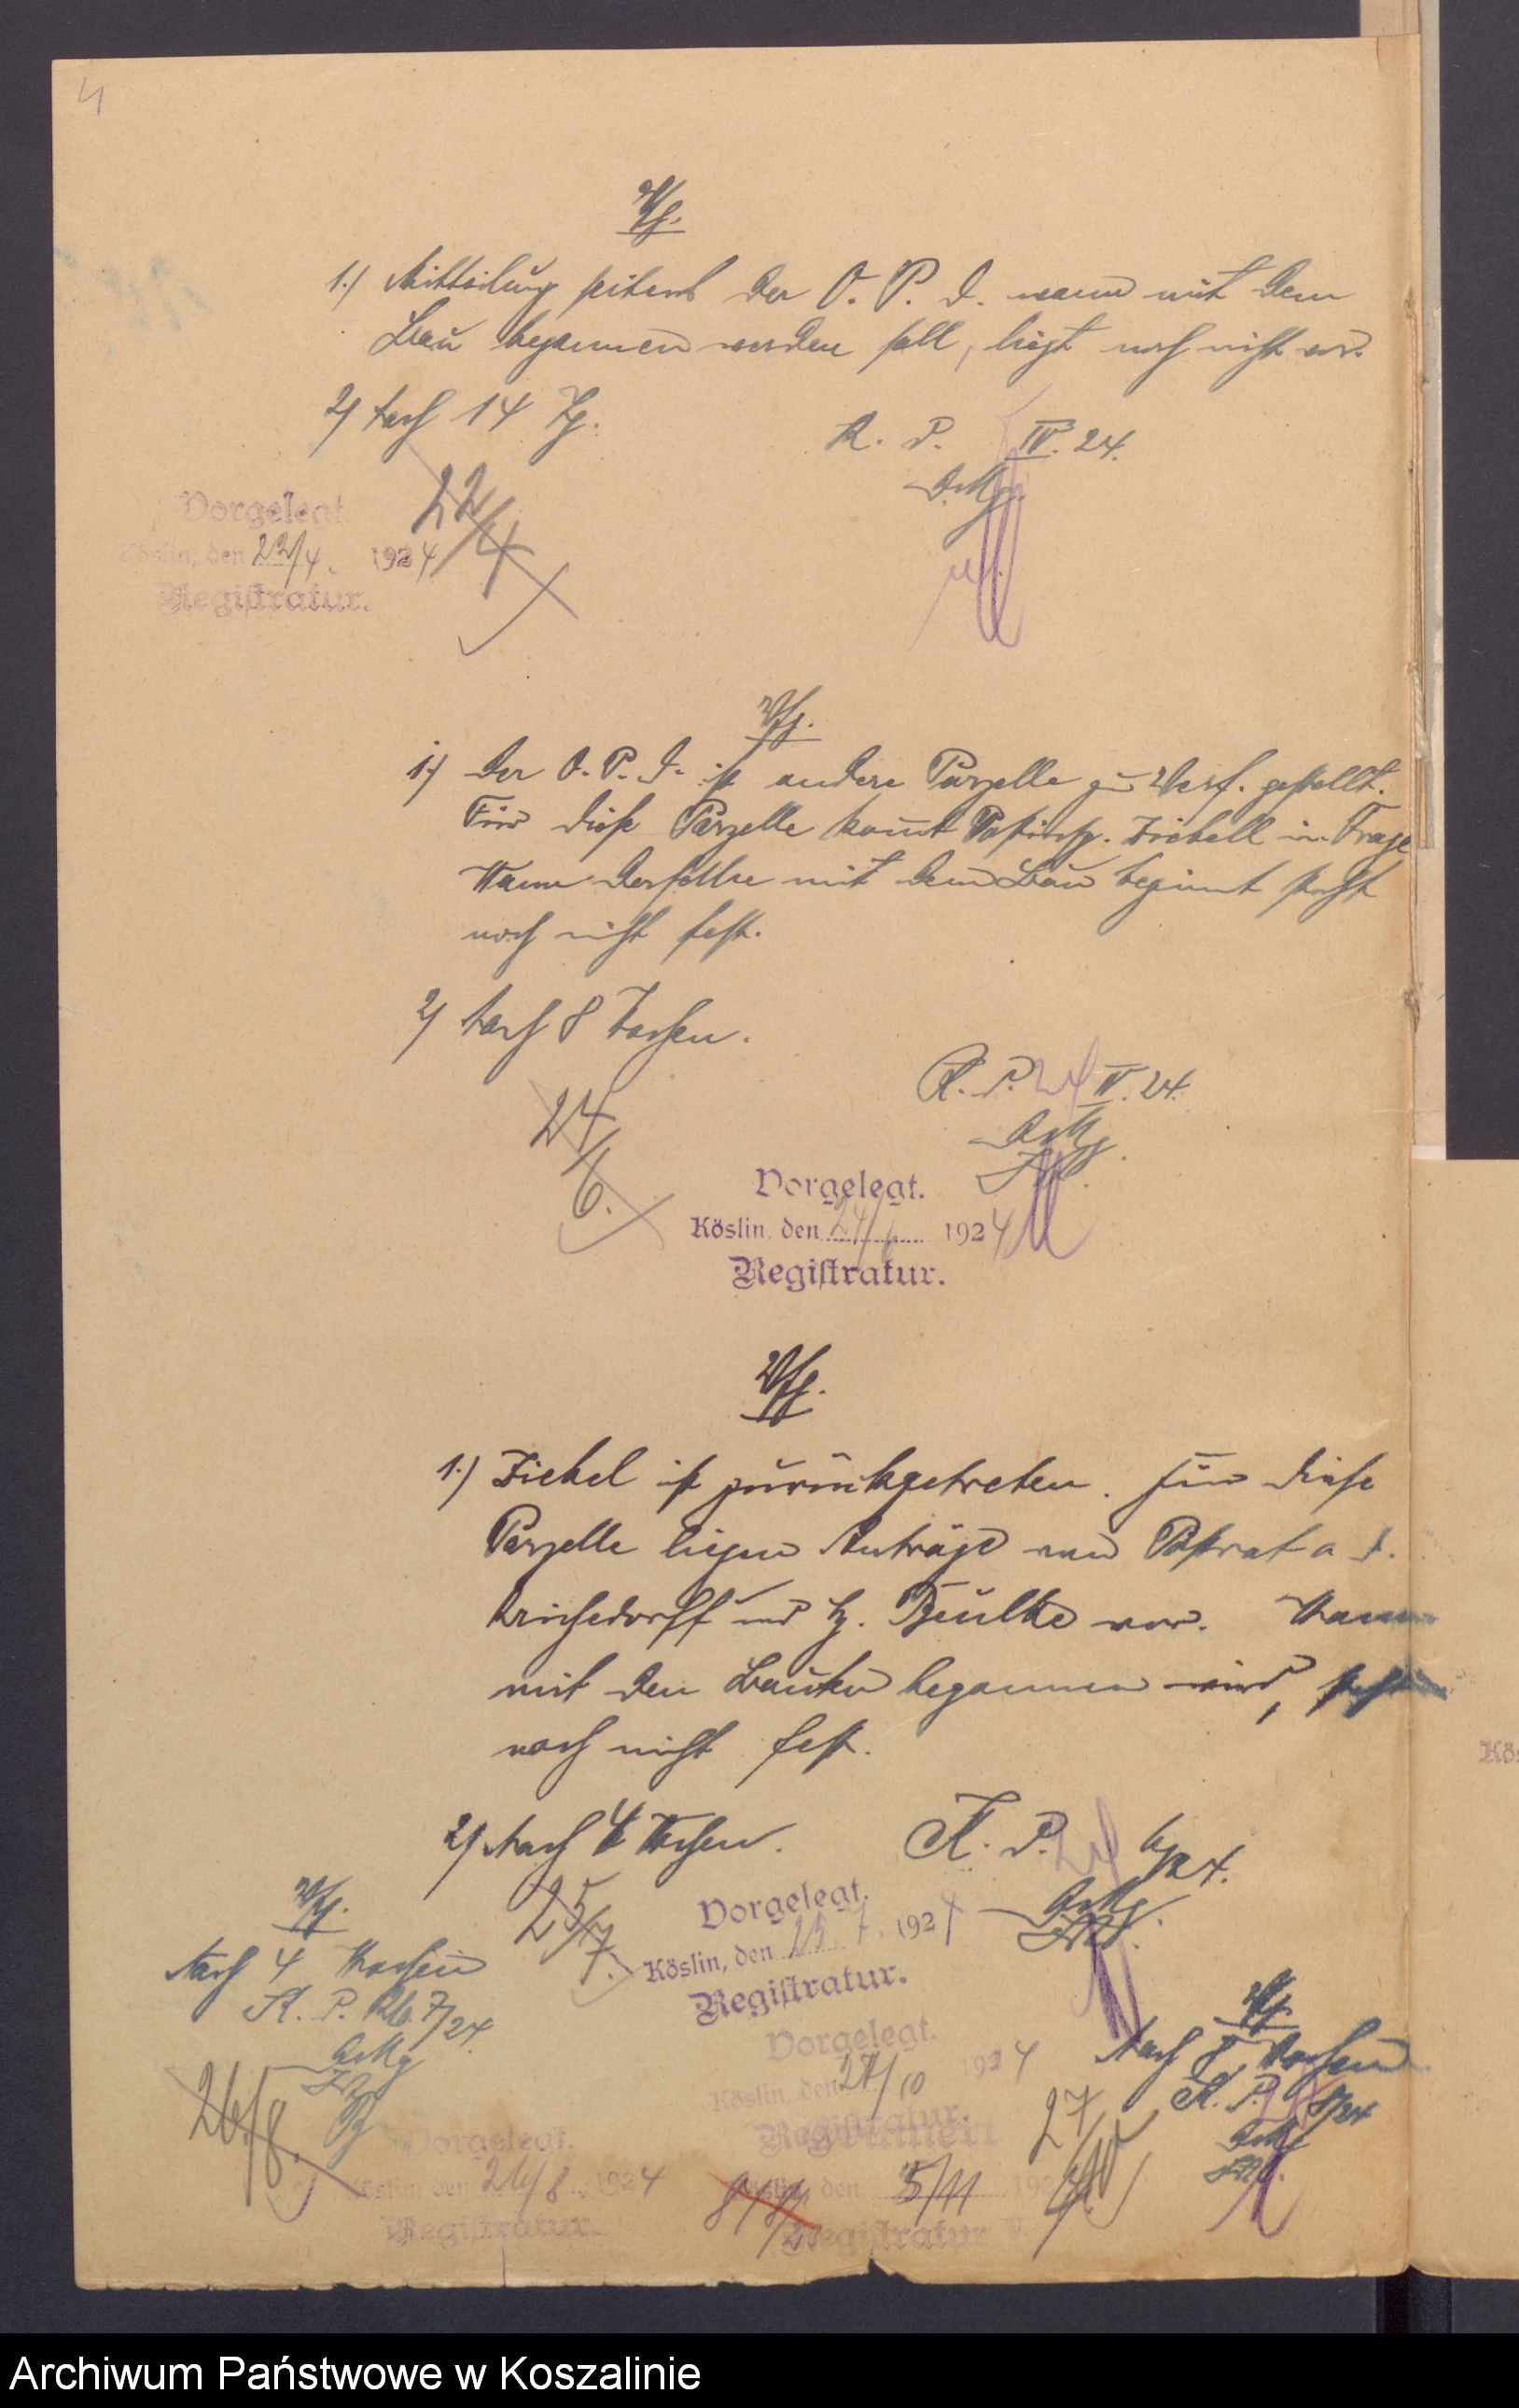 4
Vfg.
1.) Mitteilung seitens der O. P. D. wann mit dem
Bau begonnen werden soll, liegt noch nicht vor.
2) Nach 14 Tg.
K. d. IV. 24.
22/4
Vorgelegt
Köslin, den 22/4. 1924
Registratur.
Vfg.
1.) Der O. P. D. ist andere Parzelle zur Verf. gestellt.
Für diese Parzelle kommt Ziebell in Frage
Wann derselbe mit dem Bau beginnt steht
noch nicht fest.
2) Nach 8 Wochen.
K. d. 24 IV. 24.
24/6.
Vorgelegt.
Köslin, den 24/6 1924
Registratur.
Vfg.
1.) Ziebel ist zurückgetreten. Für diese
Parzelle liegen Anträge von Postrat a. D.
und vor. Wann
mit den Bauten begonnen wird, steht
noch nicht fest.
2) Nach 4 Wochen.
K. d. 24 6/24.
25/7.
Vorgelegt.
Köslin, den 25. 7. 1924
Registratur.
Vfg.
Nach 4 Wochen
K. d. 26.7/24.
26/8.
Vorgelegt.
Köslin, den 26/8 1924
Registratur.
Vfg.
Nach 8 Wochen
K. d. 8/24
27/10
Vorgelegt.
Köslin, den 27/10 1924
Registratur.
Köslin, den 5/11 192
Registratur V.
Kös
Archiwum Państwowe w Koszalinie